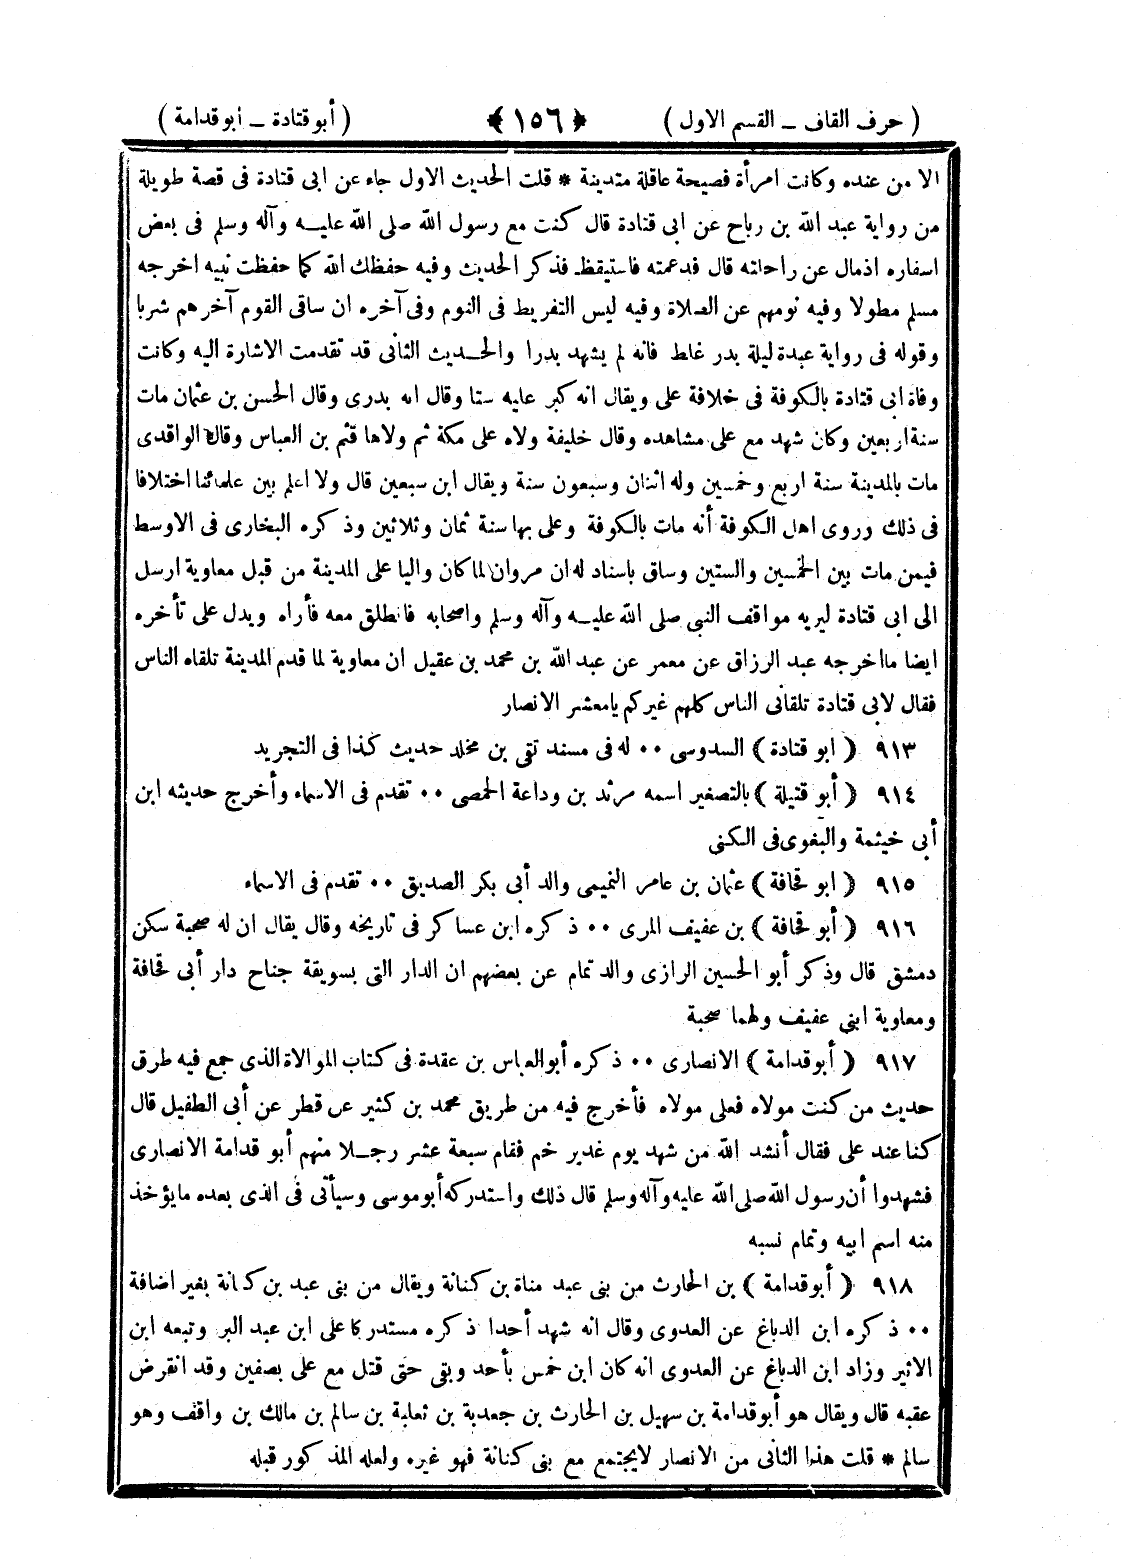 ( حرف القاف ــ القسم الاول ) ﴿ ١٥٦ ﴾ ( أبو قتادة ــ أبو قدامة )
الا من عنده وكانت امرأة فصيحة عاقلة متدينة * قلت الحديث الاول جاء عن ابى قتادة فى قصة طويلة
من رواية عبد الله بن رباح عن ابى قتادة قال كنت مع رسول الله صلى الله عليـــه وآله وسلم فى بعض
اسفاره اذمال عن راحلته قال فدعمته فاستيقظ فذكر الحديث وفيه حفظك الله كما حفظت نبيه اخرجه
مسلم مطولا وفيه نومهم عن الصلاة وفيه ليس التفريط فى النوم وفى آخره ان ساقى القوم آخرهم شربا
وقوله فى رواية عبدة ليلة بدر غلط فانه لم يشهد بدرا والحـــديث الثانى قد تقدمت الاشارة اليه وكانت
وفاة ابى قتادة بالكوفة فى خلافة على ويقال انه كبر عليه ستا وقال انه بدرى وقال الحسن بن عثمان مات
سنة اربعين وكان شهد مع على مشاهده وقال خليفة ولاه على مكة ثم ولاها قثم بن العباس وقال الواقدى
مات بالمدينة سنة اربع وخمسين وله اثنان وسبعون سنة ويقال ابن سبعين قال ولا اعلم بين علمائنا اختلافا
فى ذلك وروى اهل الكوفة أنه مات بالكوفة وعلى بها سنة ثمان وثلاثين وذكره البخارى فى الاوسط
فيمن مات بين الخمسين والستين وساق باسناد له ان مروان لما كان واليا على المدينة من قبل معاوية ارسل
الى ابى قتادة ليريه مواقف النبى صلى الله عليـــه وآله وسلم واصحابه فانطلق معه فأراه ويدل على تأخره
ايضا ما اخرجه عبد الرزاق عن معمر عن عبد الله بن محمد بن عقيل ان معاوية لما قدم المدينة تلقاه الناس
فقال لابى قتادة تلقانى الناس كلهم غيركم يامعشر الانصار
٩١٣ ( ابو قتادة ) السدوسى ٠٠ له فى مسند تقى بن مخلد حديث كذا فى التجريد
٩١٤ ( أبو قتيلة ) بالتصغير اسمه مرثد بن وداعة الحمصى ٠٠ تقدم فى الاسماء وأخرج حديثه ابن
أبى خيثمة والبغوى فى الكنى
٩١٥ ( ابو قحافة ) عثمان بن عامر التميمى والد أبى بكر الصديق ٠٠ تقدم فى الاسماء
٩١٦ ( أبو قحافة ) بن عفيف المرى ٠٠ ذكره ابن عساكر فى تاريخه وقال يقال ان له صحبة سكن
دمشق قال وذكر أبو الحسين الرازى والد تمام عن بعضهم ان الدار التى بسويقة جناح دار أبى قحافة
ومعاوية ابنى عفيف ولهما صحبة
٩١٧ ( أبو قدامة ) الانصارى ٠٠ ذكره أبو العباس بن عقدة فى كتاب الموالاة الذى جمع فيه طرق
حديث من كنت مولاه فعلى مولاه فأخرج فيه من طريق محمد بن كثير عن قطر عن أبى الطفيل قال
كنا عند على فقال أنشد الله من شهد يوم غدير خم فقام سبعة عشر رجـــلا منهم أبو قدامة الانصارى
فشهدوا أن رسول الله صلى الله عليه وآله وسلم قال ذلك واستدركه أبو موسى وسيأتى فى الذى بعده مايؤخذ
منه اسم ابيه وتمام نسبه
٩١٨ ( أبو قدامة ) بن الحارث من بنى عبد مناة بن كنانة ويقال من بنى عبد بن كنانة بغير اضافة
٠٠ ذكره ابن الدباغ عن العدوى وقال انه شهد أحدا ذكره مستدركا على ابن عبد البر وتبعه ابن
الاثير وزاد ابن الدباغ عن العدوى انه كان ابن خمس بأحد وبقى حتى قتل مع على بصفين وقد انقرض
عقبه قال ويقال هو أبو قدامة بن سهيل بن الحارث بن جعدبة بن ثعلبة بن سالم بن مالك بن واقف وهو
سالم * قلت هذا الثانى من الانصار لايجتمع مع بنى كنانة فهو غيره ولعله المذكور قبله